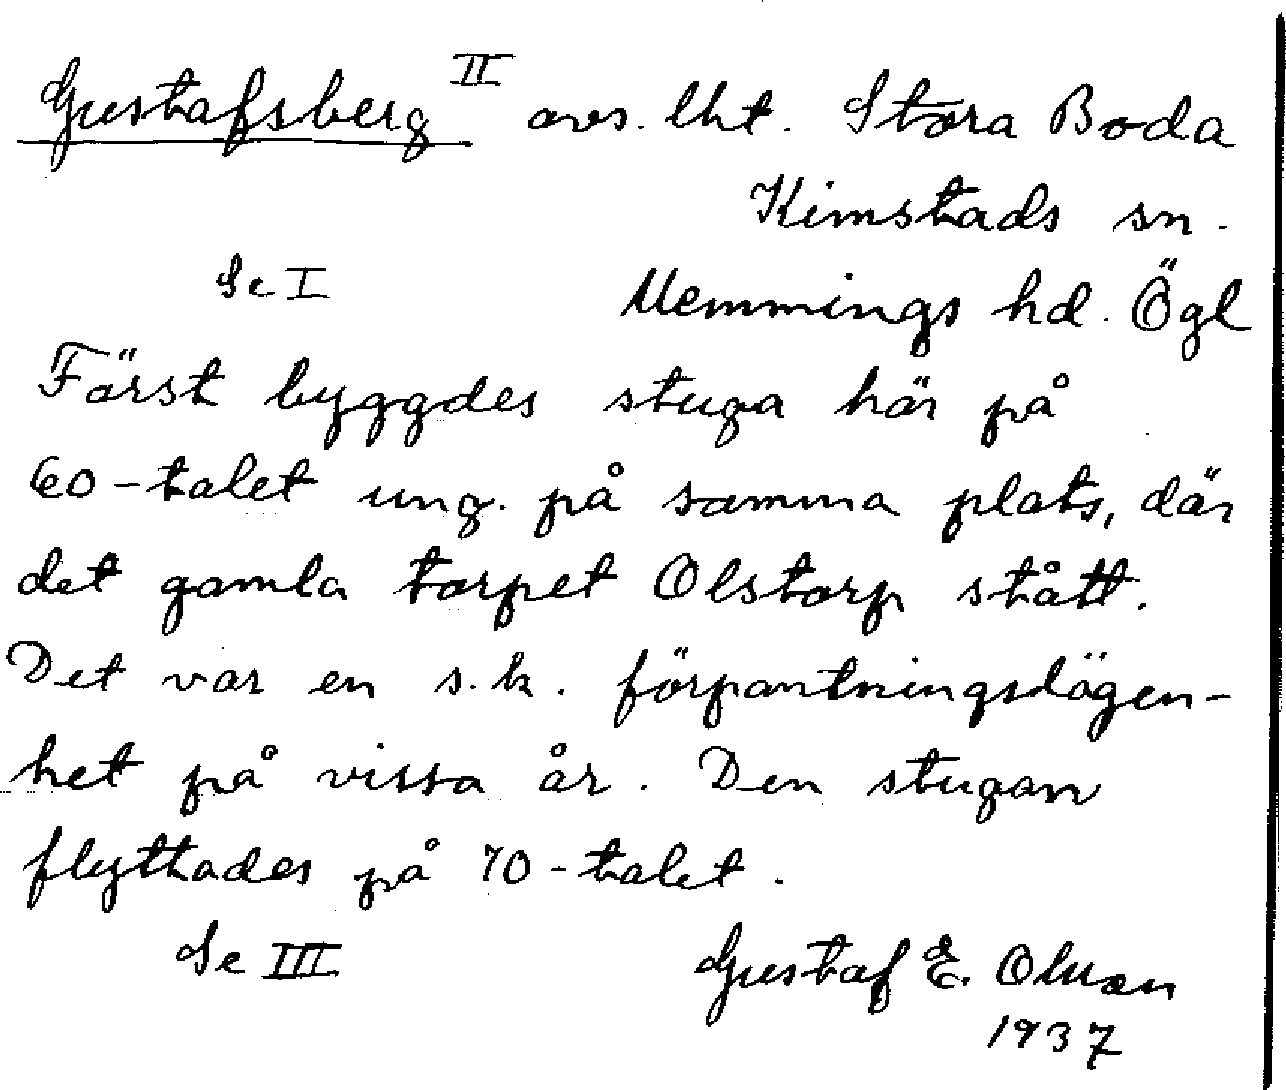 Gustafsberg II avs. lht. Stora Boda
Kimstads sn.
Se I Memmings hd. Ögl
Först byggdes stuga här på
60-talet ung. på samma plats, där
det gamla torpet Olstorp stått.
Det var en s.k. förpantningslägen-
het på vissa år. Den stugan
flyttades på 70-talet.
Se III Gustaf E. Olsson
1937